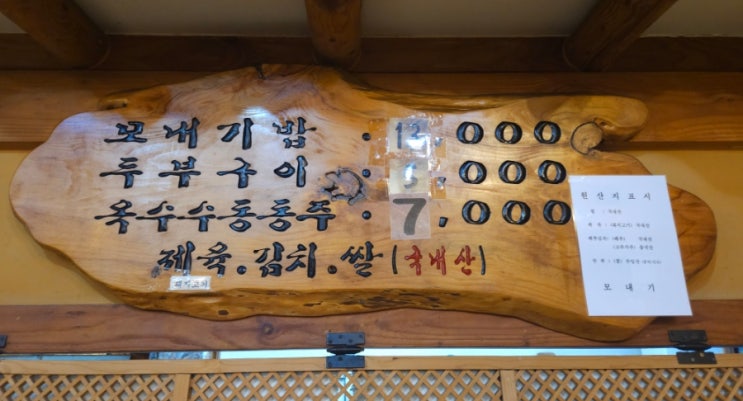 모내기밥 : 12,000
두부구이 : 8,000
옥수수동동주 : 7,000
제육.김치.쌀(국내산)
돼지고기
원산지표시
쌀 : 국내산
보내기